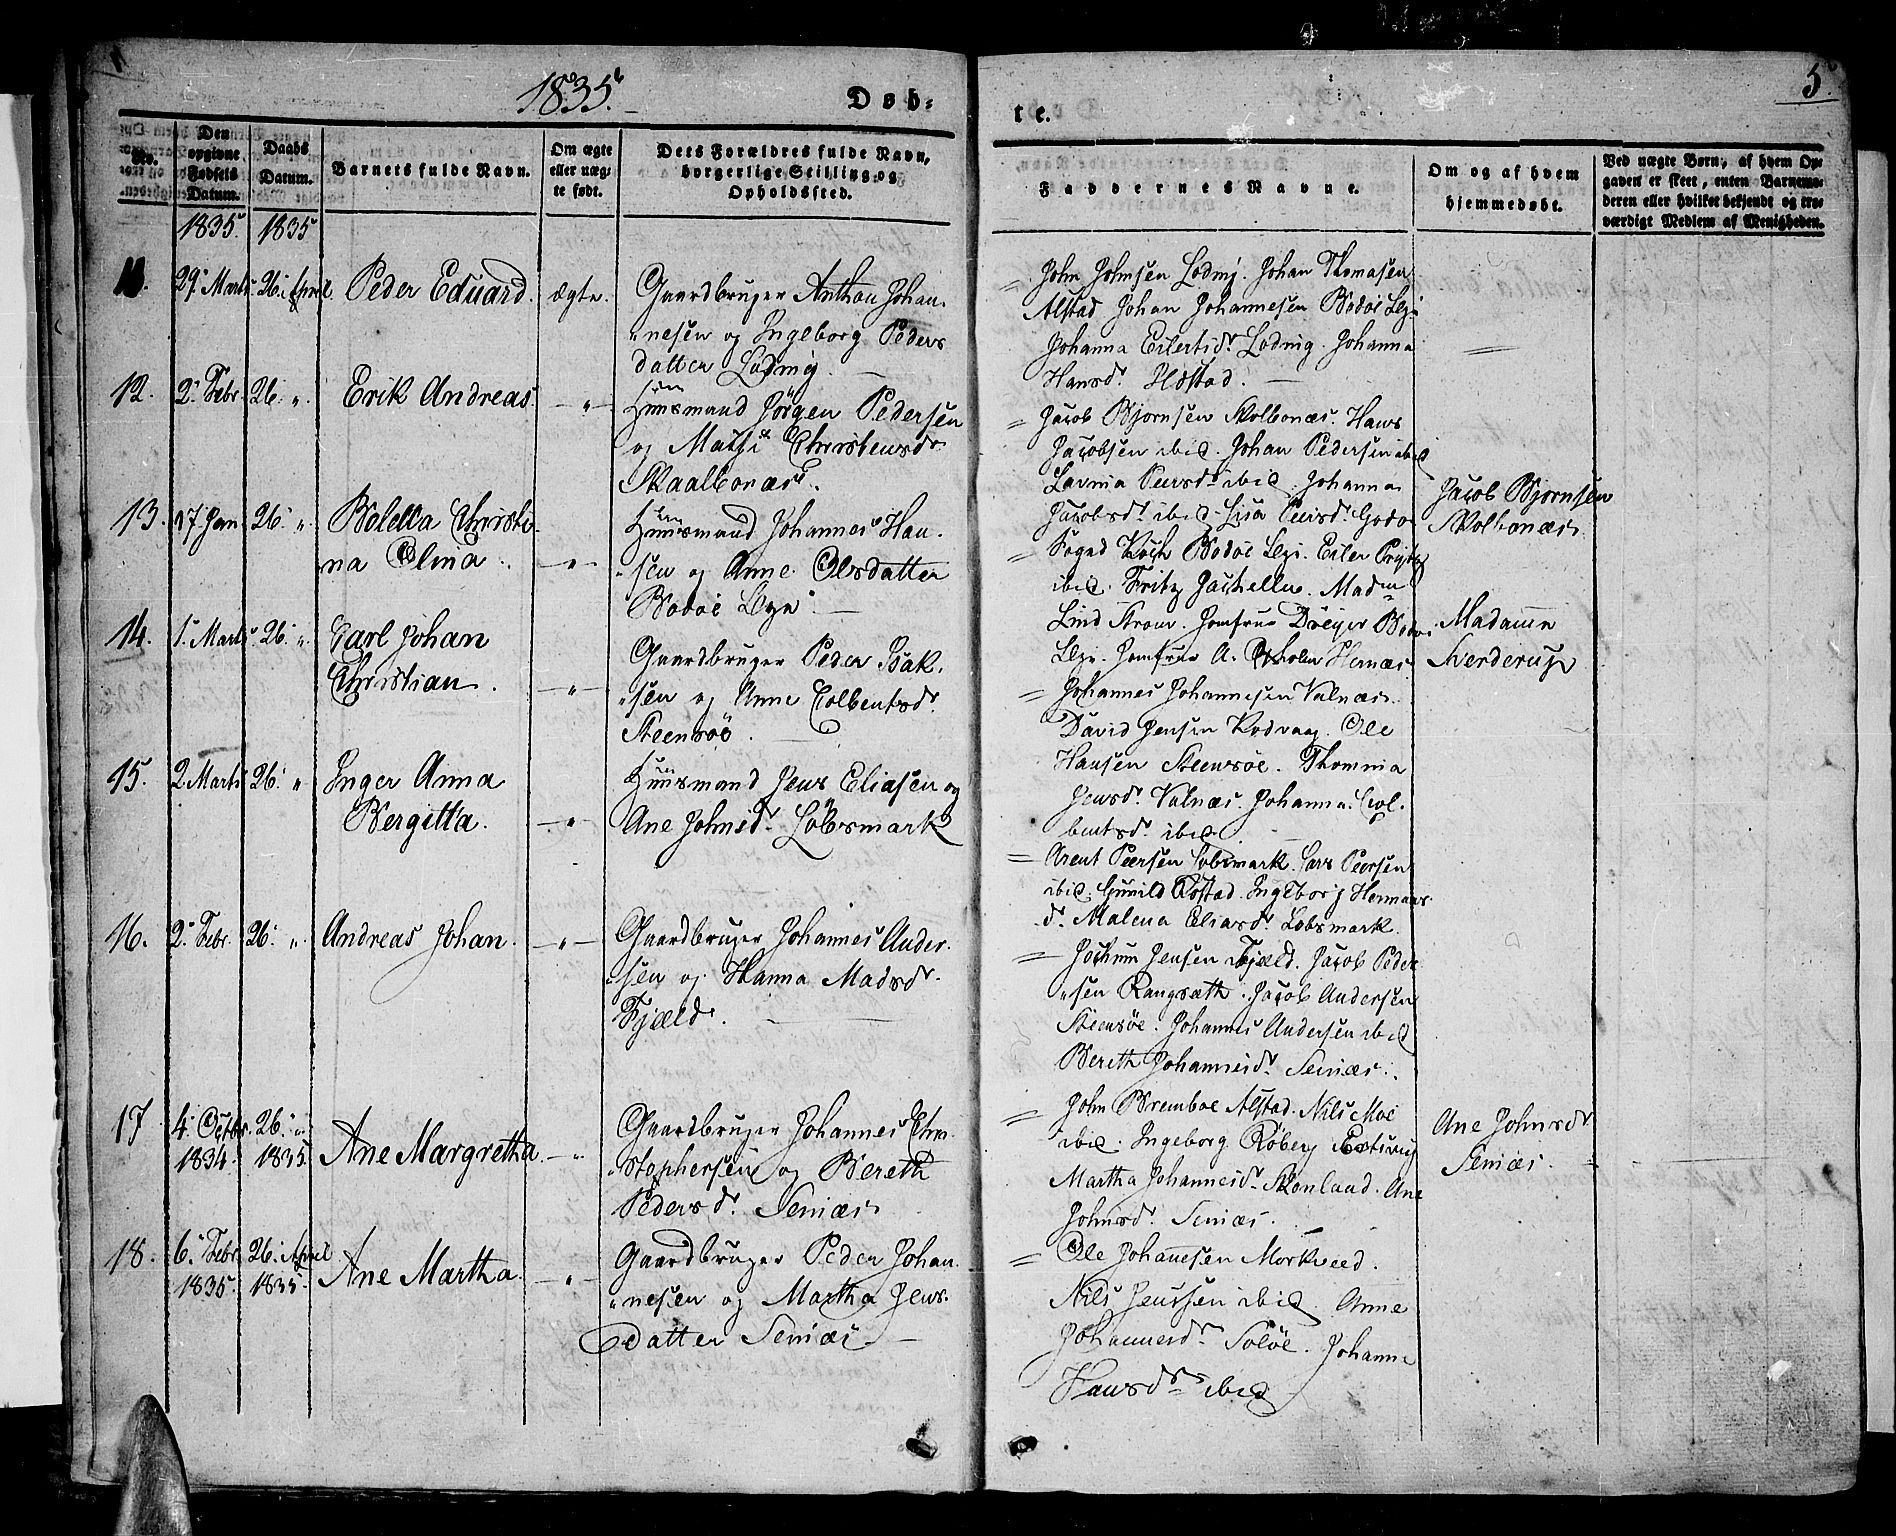 1835.
Døb-
te.
5.
No.
Den opgivne Fødsels Datum.
Daabs Datum.
Barnets fulde Navn.
Om ægte eller uægte født.
Dets Forældres fulde Navn, borgerlige Stilling og Opholdssted.
Faddernes Navne.
Om og af hvem hjemmedøbt.
Ved uægte Børn, af hvem Opgaven er skeet, enten Barnemoderen eller hvilket bekjendt og troværdigt Medlem af Menigheden.
1835. 1835
11. 29. Marts 26. April. Peder Eduard. ægte.
Gaardbruger Anthon Johan-
nesen og Ingeborg Peders
datter Løding.
= John Johnsen Løding. Johan Thomasen
Alstad Johan Johannesen Bodøe
Johanna Eilertsd. Lødning. Johanna
Hansd. Høstad.
12. 2. Febr. 26. " Erik Andreas. — " —
Huusmand Jørgen Pedersen
og Christensd.
Skaalbonæs.
= Jacob Bjørnsen Skolbonæs. Hans
Jacobsen ibid. Johan Pedersen ibid
Lavina Peersd. ibid. Johanna
Jacobsd. ibid. Lisa Peersd. Godø
Jacob Bjørnsen
Skolbonæs.
13. 17 Jan 26. " Boletta Christi-
na Olina. — " —
Huusmand Johannes Han-
sen og Anne Olsdatter
Bodøe
= Koch Bodøe Eiler
ibid. Fritz Jackhelln. Madm
Lind Strøm. Jomfrue Dreyer Bodøe
Jomfrue A. Hernæs
Madamm
Sverderup
14. 1. Marts 26. " Carl Johan
Christian. — " —
Gaardbruger Peder Isak-
sen og Anne Colbentsd.
Steensøe.
= Johannes Johannesen Valnæs
David Jensen Kodvaag. Ole
Hansen Steensøe. Thomina
Jensd. Valnæs. Johanna Col-
bentsd. ibid
15. 2 Marts 26. " Inger Anna
Bergitta. — " —
Huusmand Jens Eliasen og
Ane Johnsd. Løbsmark
= Arent Peersen Løbsmark. Lars Peersen
ibid. Gunild Ingeborg Hermans
d. Malena Eliasd. Løbsmark.
16. 2. Febr. 26. " Andreas Johan. — " —
Gaardbruger Johannes Ander-
sen og Hanna Madsd.
Fjæld.
= Jochum Jensen Fjæld. Jacob Peder
sen Rangsæth. Jacob Andersen
Steensøe. Johannes Andersen ibid
Bereth Johannesd. Seinæs.
17 4. Octbr. 26. "
1834. 1835. Ane Margretha — " —
Gaardbruger Johannes Chri-
stophersen og Bereth
Pedersd. Seinæs
= John Bremboe Alstad. Nils Moe
ibid. Ingeborg Røberg
Martha Johannesd. Skonland. Ane
Johnsd. Seinæs.
Ane Johnsd
Seinæs.
18. 6. Febr. 26. April
1835. 1835. Ane Martha. — " —
Gaardbruger Peder Johan-
nesen og Martha Jens-
datter Seinæs
= Ole Johannesen Mørkveed.
Nils Jenssen ibid. Anne
Johannesd. Soløe. Johanna
Hansd. ibid